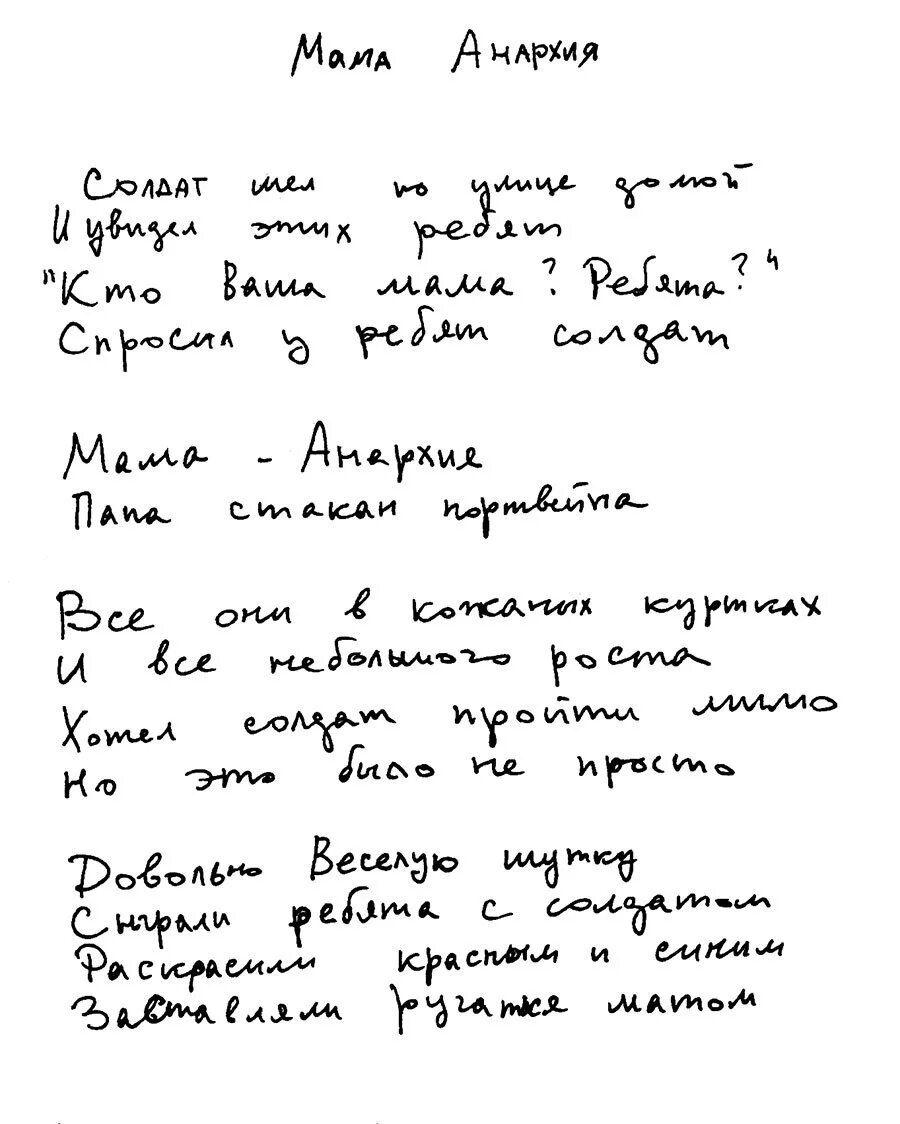 Мама Анархия
Солдат шел по улице домой
И увидел этих ребят
"Кто Ваша мама? Ребята?"
Спросил у ребят солдат
Мама - Анархия
Папа стакан портвейна
Все они в кожаных куртках
И все небольшого роста
Хотел солдат пройти мимо
Но это было не просто
Довольно Веселую шутку
Сыграли ребята с солдатом
Раскрасили красным и синим
Заставляли ругаться матом